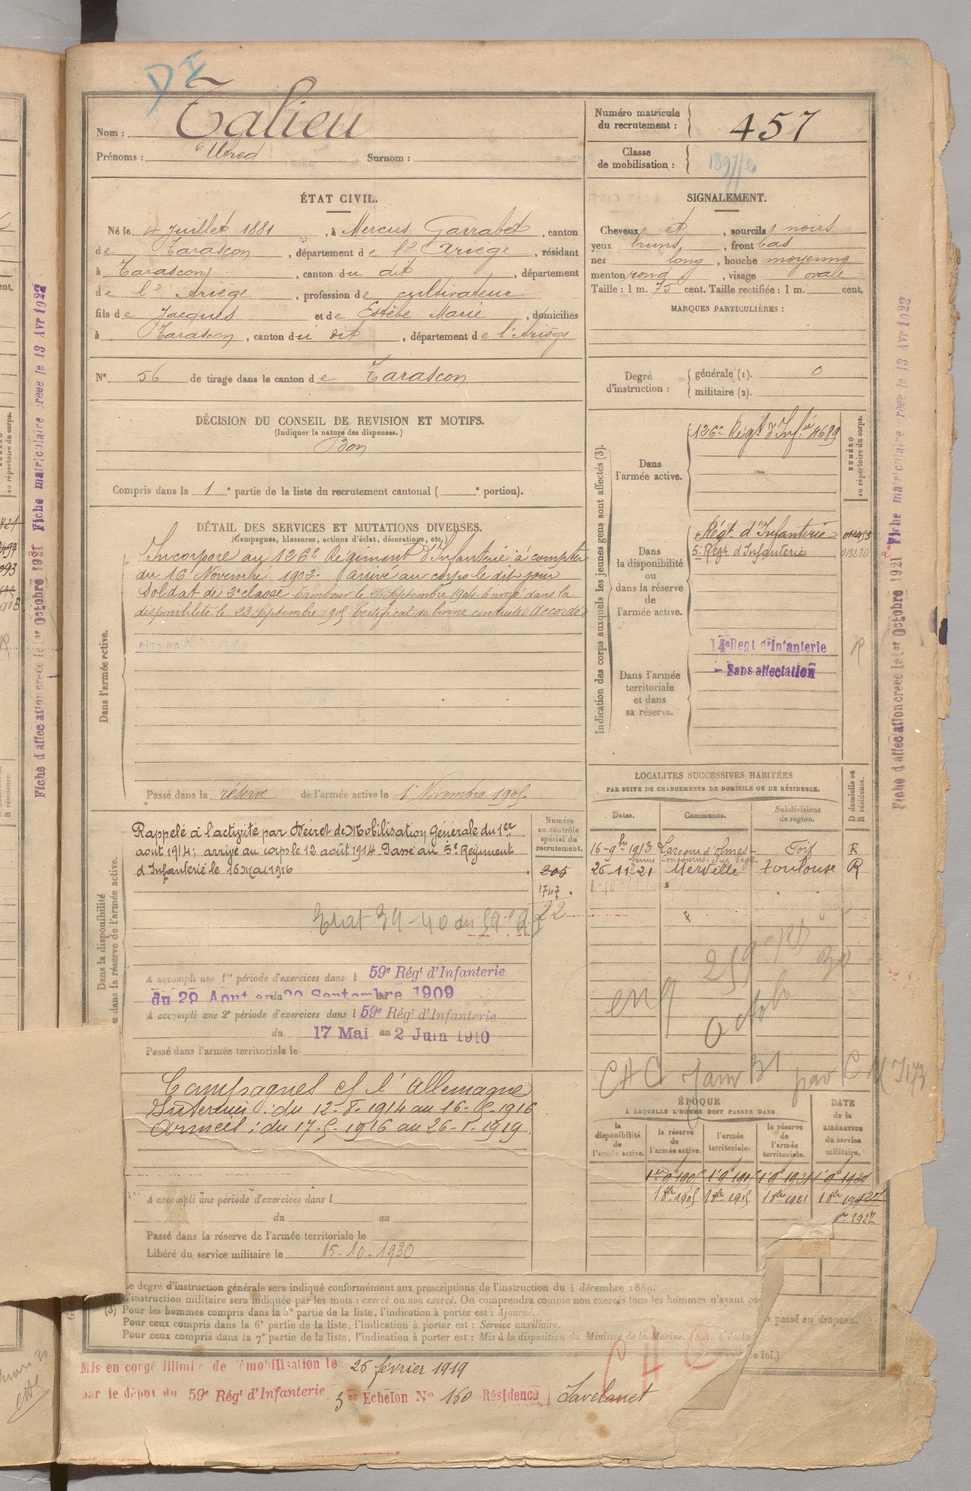 Nom : Talieu
Prénoms : Alfred Surnom :
Numéro matricule du recrutement : 457
Classe de mobilisation : 1897
ÉTAT CIVIL.
Né le 4 Juillet 1881, à Mercus Garrabet, canton
de Tarascon, département de l'Ariège, résidant
à Tarascon, canton du dit, département
de l'Ariège, profession de cultivateur
fils de Jacques et de Estèbe Marie, domiciliés
à Tarascon, canton du dit, département de l'Ariège
N° 56 de tirage dans le canton de Tarascon
SIGNALEMENT.
Cheveux et, sourcils noirs
yeux bruns, front bas
nez long, bouche moyenne
menton rond, visage ovale
Taille : 1 m. 75 cent. Taille rectifiée : 1 m. cent.
MARQUES PARTICULIÈRES :
Degré d'instruction : générale (1). 0
militaire (2).
DÉCISION DU CONSEIL DE REVISION ET MOTIFS.
(Indiquer la nature des dispenses.)
Bon
Compris dans la 1e partie de la liste du recrutement cantonal ( e portion).
DÉTAIL DES SERVICES ET MUTATIONS DIVERSES.
(Campagnes, blessures, actions d'éclat, décorations, etc.)
Dans l'armée active.
Incorporé au 126e Régiment d'Infanterie à compter
du 16 Novembre 1902. Arrivé au corps le dit jour
Soldat de 2e classe tambour le Septembre 1904. Envoyé dans la
disponibilité le 23 Septembre 1905. Certificat de bonne conduite Accordé
Passé dans la réserve de l'armée active le 1 Novembre 1905.
Indication des corps auxquels les jeunes gens sont affectés (3).
NUMÉRO au répertoire du corps.
Dans l'armée active.
126e Régt d'Infie 4689
Dans la disponibilité ou dans la réserve de l'armée active.
Régt. d'Infanterie
5e Régt d'Infanterie
Dans l'armée territoriale et dans sa réserve.
14e Regt d'Infanterie
Sans affectation
Fiche d'affectation créée le 1er Octobre 1921
Fiche matriculaire créée le 13 Avr 1922
Dans la disponibilité ou dans la réserve de l'armée active.
Rappelé à l'activité par Décret de Mobilisation Générale du 1er
août 1914 ; arrivé au corps le 12 août 1914 Passé au 5e Régiment
d'Infanterie le 16 Mai 1916
Numéro au contrôle spécial du recrutement.
205
1747
22
Etat 39-40 du
A accompli une 1re période d'exercices dans l 59e Régt d'Infanterie
du 29 Aout au 20 Septembre 1909
A accompli une 2e période d'exercices dans l 59e Régt d'Infanterie
du 17 Mai au 2 Juin 1910
Passé dans l'armée territoriale le
Campagnes et l'Allemagne
Intérieur : du 12-8-1914 au 16-5-1916
Armées : du 17-5-1916 au 26-1-1919
A accompli une période d'exercices dans l
du au
Passé dans la réserve de l'armée territoriale le
Libéré du service militaire le 15.10.1930
LOCALITÉS SUCCESSIVES HABITÉES
PAR SUITE DE CHANGEMENTS DE DOMICILE OU DE RÉSIDENCE.
Dates. Communes. Subdivisions de région. D domicile ou R résidence.
16-9bre 1913 Laroque d'Olmes Foix R
26-11-21 Merville Toulouse R
eng
CAC Janv 31 par
ÉPOQUE
A LAQUELLE L'HOMME DOIT PASSER DANS
la disponibilité de l'armée active.
la réserve de l'armée active.
l'armée territoriale.
la réserve de l'armée territoriale.
DATE de la LIBÉRATION du service militaire.
1927
Le degré d'instruction générale sera indiqué conformément aux prescriptions de l'instruction du 4 décembre 1889.
L'instruction militaire sera indiquée par les mots : exercé ou non exercé. On comprendra comme non exercés tous les hommes n'ayant pas
passé au drapeau.
(3) Pour les hommes compris dans la 5e partie de la liste, l'indication à porter est : Ajourné.
Pour ceux compris dans la 6e partie de la liste, l'indication à porter est : Service auxiliaire.
Pour ceux compris dans la 7e partie de la liste, l'indication à porter est : Mis à la disposition du Ministre de la Marine.
la loi.)
CAC
Mis en congé illimité de démobilisation le 26 février 1919
par le dépôt du 59e Régt d'Infanterie 3e Echelon N° 160 Résidence Lavelanet